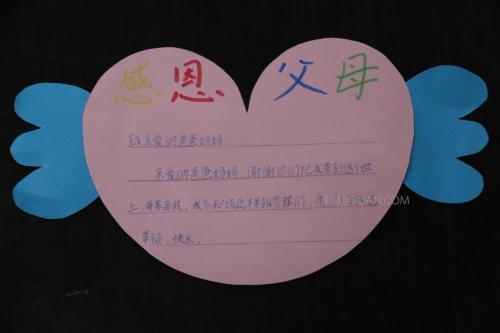 感恩 父母
致亲爱的爸爸妈妈:
亲爱的爸爸妈妈,谢谢你们把我带到这个世
上,并养育我,我不知该怎样报答你们,愿你们
幸福,快乐。